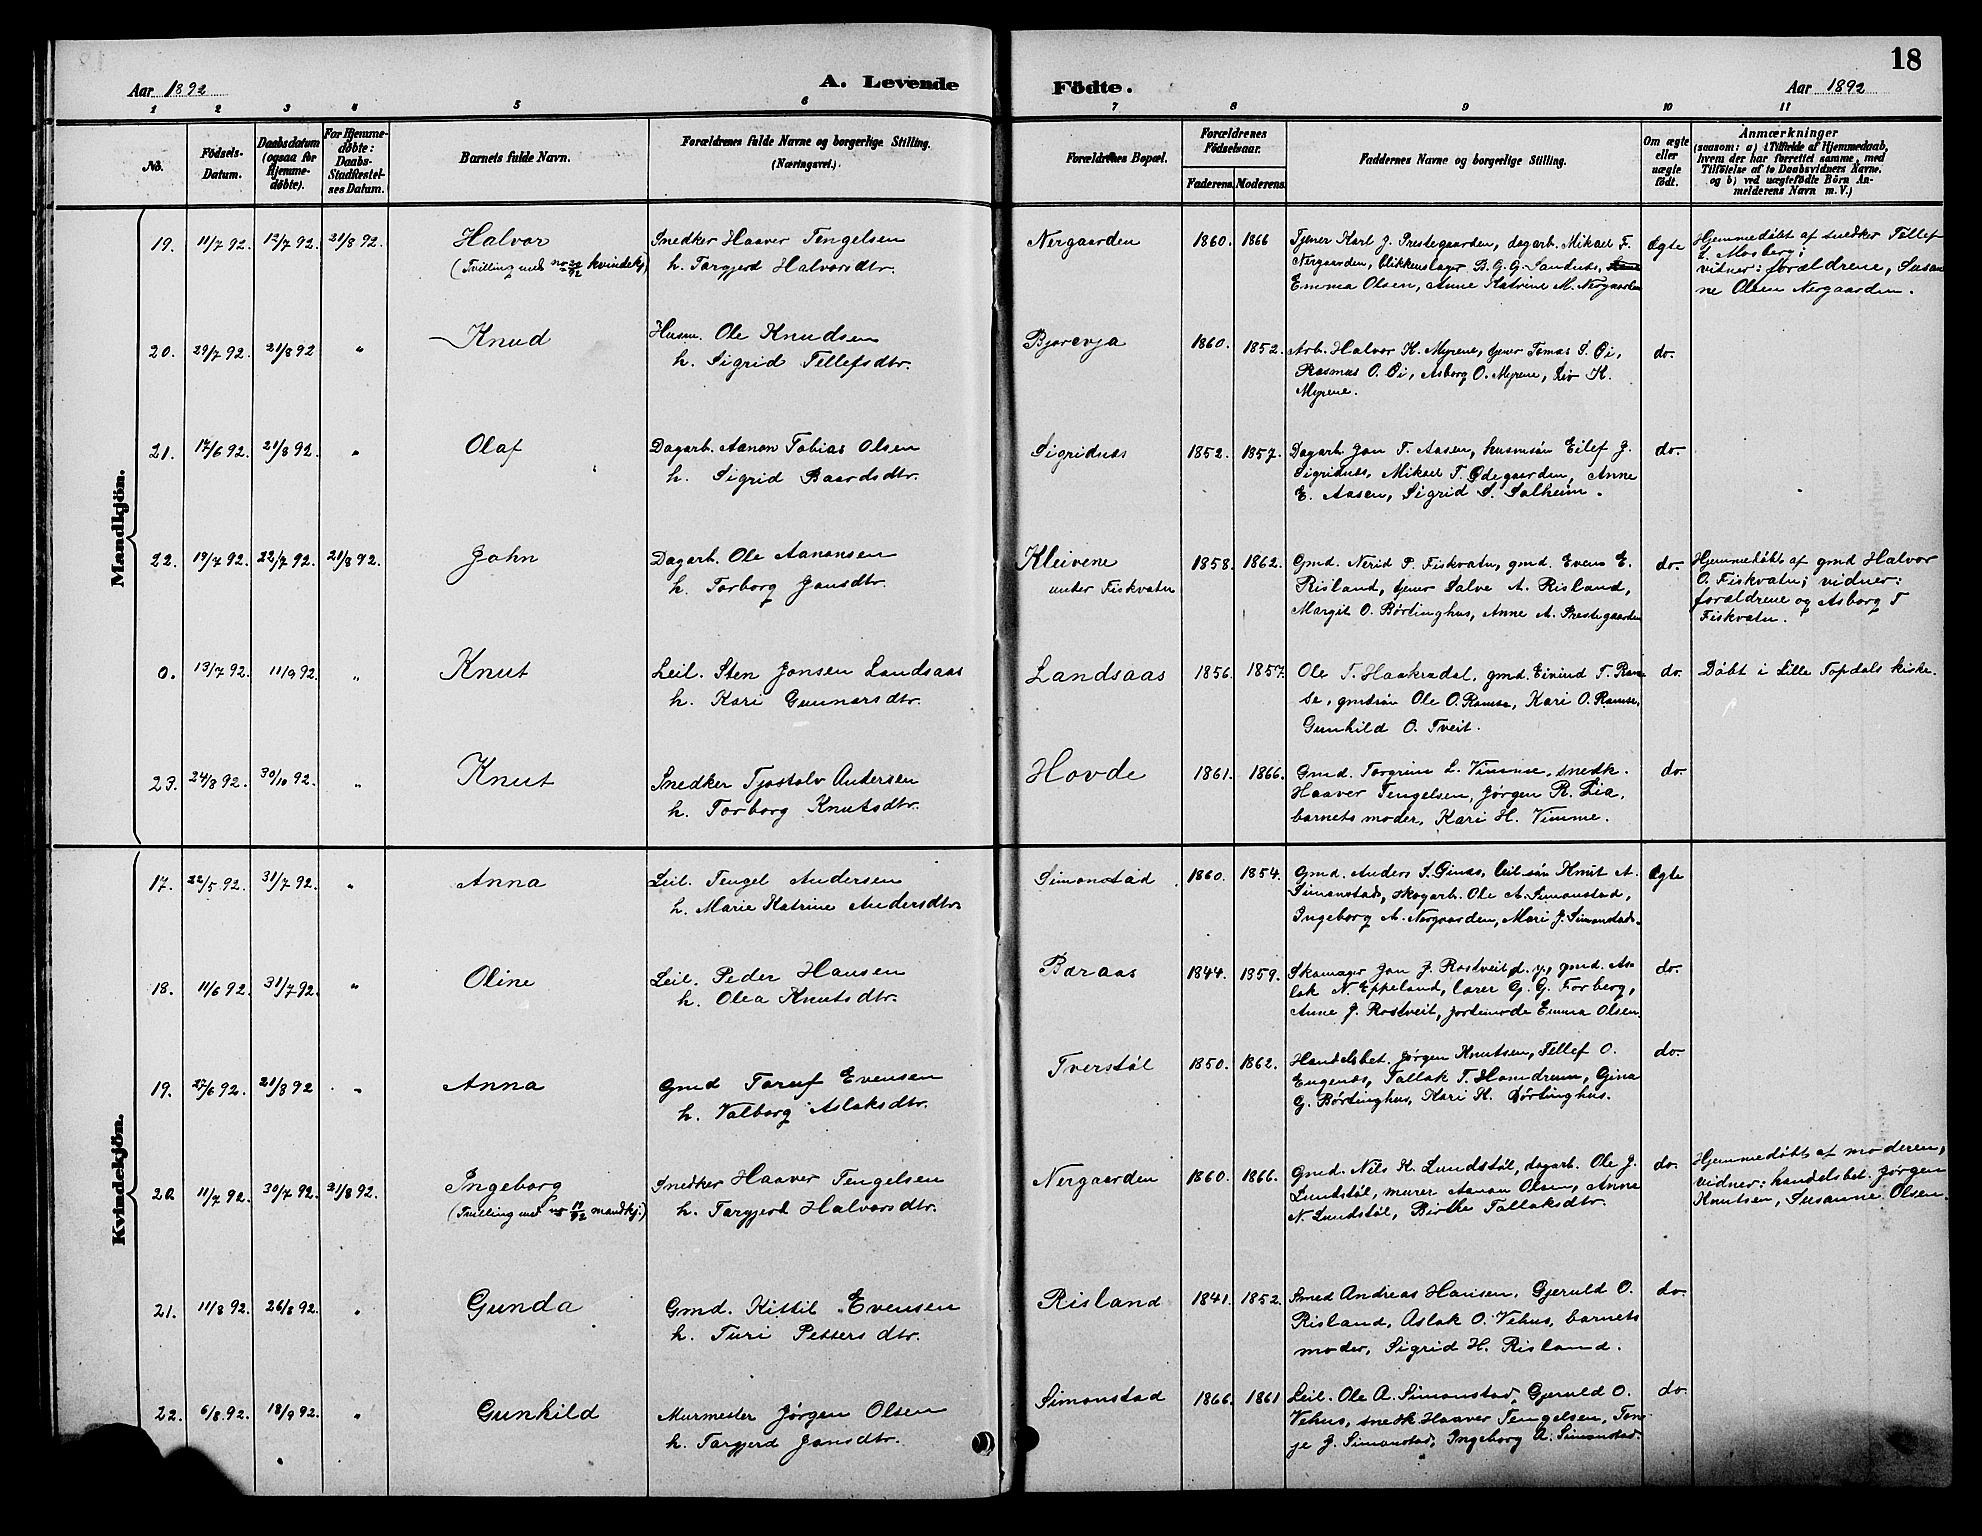 18
Aar 1892
A. Levende
Födte.
Aar 1892
1 2 3 4 5 6 7 8 9 10 11
No.
Födsels-
Datum.
Daabsdatum
(ogsaa for
Hjemme-
döbte).
For Hjemme-
döbte:
Daabs-
Stadfæstel-
ses Datum.
Barnets fulde Navn.
Forældrenes fulde Navne og borgerlige Stilling.
(Næringsvei.)
Forældrenes Bopæl.
Forældrenes
Födselsaar.
Faderens. Moderens.
Faddernes Navne og borgerlige Stilling.
Om ægte
eller
uægte
født.
Anmærkninger
(saasom: a) i Tilfælde af Hjemmedaab,
hvem der har forrettet samme, med
Tilföielse af to Daabsvidners Navne,
og b) ved uægtefödte Börn An-
melderens Navn m. V.)
Mandkjön.
19. 11/7 92. 12/7 92. 21/8 92.
Halvor
(Tvilling med no 20/92 kvindekj)
Snedker Haaver Tengelsen
h. Targjerd Halvorsdtr.
Nergaarden
1860. 1866
Tjener Karl J. Prestegaarden, dagarb. Mikael F.
Nergaarden, blikkenslager B. G. G. Sandnes,
Emma Olsen, Anne Katrine M. Nergaarden
Ægte
Hjemmedøbt af snedker Tellef
L. Mosberg;
vidner: forældrene, Susan
ne Olsen Nergaarden.
20. 29/7 92. 21/8 92 "
Knud
Husm. Ole Knudsen
h. Sigrid Tellefsdtr.
Bjorevja
1860. 1852.
Arb. Halvor K. Myrene, tjener Tomas S. Øi,
Rasmus O. Øi, Asborg O. Myrene, Liv K.
Myrene.
do.
21. 17/6 92. 21/8 92. "
Olaf
Dagarb. Aanon Tobias Olsen
h. Sigrid Baardsdtr.
Sigridnæs
1852. 1857.
Dagarb. Jon T. Aasen, husmsøn Eilef J.
Sigridnæs, Mikael T. Ødegaarden, Anne
E. Aasen, Sigrid S. Solheim.
do.
22. 19/7 92. 22/7 92. 21/8 92.
John
Dagarb. Ole Aanonsen
h. Torborg Jonsdtr.
Kleivene
under Fiskvatn
1858. 1862.
Gmd. Nerid P. Fiskvatn, gmd. Even E.
Risland, tjener Salve A. Risland,
Margit O. Børtinghus, Anne A. Prestegaarden
do.
Hjemmedøbt af gmd Halvor
O. Fiskvatn; vidner:
forældrene og Asborg T
Fiskvatn.
0. 13/7 92. 11/9 92. "
Knut
Leil. Sten Jonsen Landsaas
h. Kari Gunnarsdtr.
Landsaas
1856. 1857.
Ole T. Haakradal, gmd. Eivind T. Ram
se, gmdsøn Ole O. Ramse, Kari O. Ramse,
Gunhild O. Tveit.
do.
Døbt i Lille Topdals kirke.
23. 24/8 92. 30/10 92. "
Knut
Snedker Tjostolv Andersen
h. Torborg Knutsdtr.
Hovde
1861. 1866.
Gmd. Torgrim L. Vimme, snedk.
Haaver Tengelsen, Jørgen R. Lia,
barnets moder, Kari H. Vimme.
do.
Kvindekjön.
17. 22/5 92. 31/7 92. "
Anna
Leil. Tengel Andersen
h. Marie Katrine Andersdtr.
Simonstad
1860. 1854.
Gmd. Anders S. Øinæs, leil.søn Knut A.
Simonstad, skogarb. Ole A. Simonstad,
Ingeborg A. Nergaarden, Mari J. Simonstad.
Ægte
18. 11/6 92. 31/7 92. "
Oline
Leil. Peder Hansen
h. Olea Knutsdtr.
Baraas
1844. 1859.
Skomager Jon J. Rostveit d. y., gmd. As-
lak N. Eppeland, lærer G. G. Forberg,
Anne J. Rostveit, jordemode Emma Olsen.
do.
19. 27/6 92. 21/8 92 "
Anna
Gmd Taraf Evensen
h. Valborg Aslaksdtr.
Tverstøl
1850. 1862.
Handelsbet. Jørgen Knutsen, Tellef O.
Engenæs, Tallak T. Homdrum, Gina
G. Børtinghus, Kari K. Børtinghus.
do.
20. 11/7 92. 30/7 92. 21/8 92.
Ingeborg
(Tvilling med no 19/92 mandkj:)
Snedker Haaver Tengelsen
h. Targjerd Halvorsdtr.
Nergaarden
1860. 1866.
Gmd. Nils K. Lundstøl, dagarb. Ole J.
Lundstøl, murer Aanon Olsen, Anna
N. Lundstøl, Birthe Tallaksdtr.
do.
Hjemmedøbt af moderen,
vidner: handelsbet. Jørgen
Knutsen, Susanne Olsen.
21. 11/8 92. 26/8 92. "
Gunda
Gmd. Kittil Evensen
h. Turi Pettersdtr.
Risland
1841. 1852.
Smed Andreas Hansen, Gjeruld O.
Risland, Aslak O. Vehus, barnets
moder, Sigrid H. Risland.
do.
22. 6/8 92. 18/9 92. "
Gunhild
Murmester Jørgen Olsen
h. Targjerd Jonsdtr.
Simonstad
1866. 1861
Leil. Ole A. Simonstad, Gjeruld O.
Vehus, snedk. Haaver Tengelsen, Ton-
je J. Simonstad, Ingeborg A. Simonstad.
do.